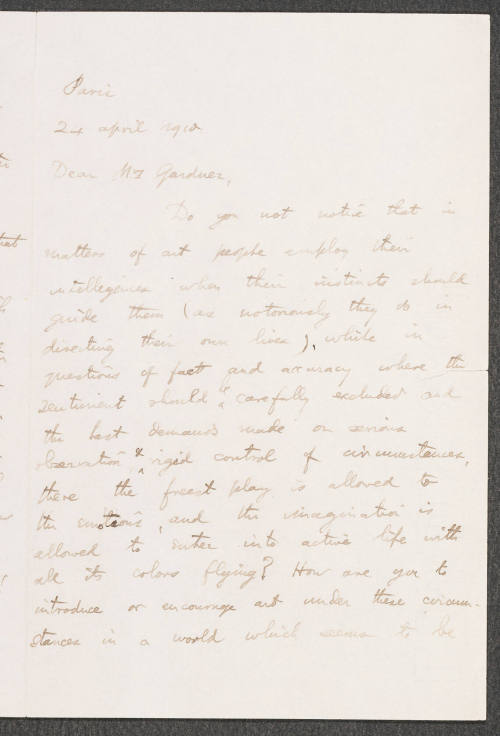 Paris
24 april 1910
Dear Mrs Gardner,
Do you not notice that in
matters of art people employ their
intelligence when their instincts should
guide them (as notoriously they do in
directing their own lives), while in
questions of fact and accuracy where the
sentiment should be carefully excluded and
the best demands made on serious
observation & rigid control of circumstances,
there the freest play is allowed to
the emotions, and the imagination is
allowed to enter into active life with
all its colors flying? How are you to
introduce or encourage art under these circum-
stances in a world which seems to be